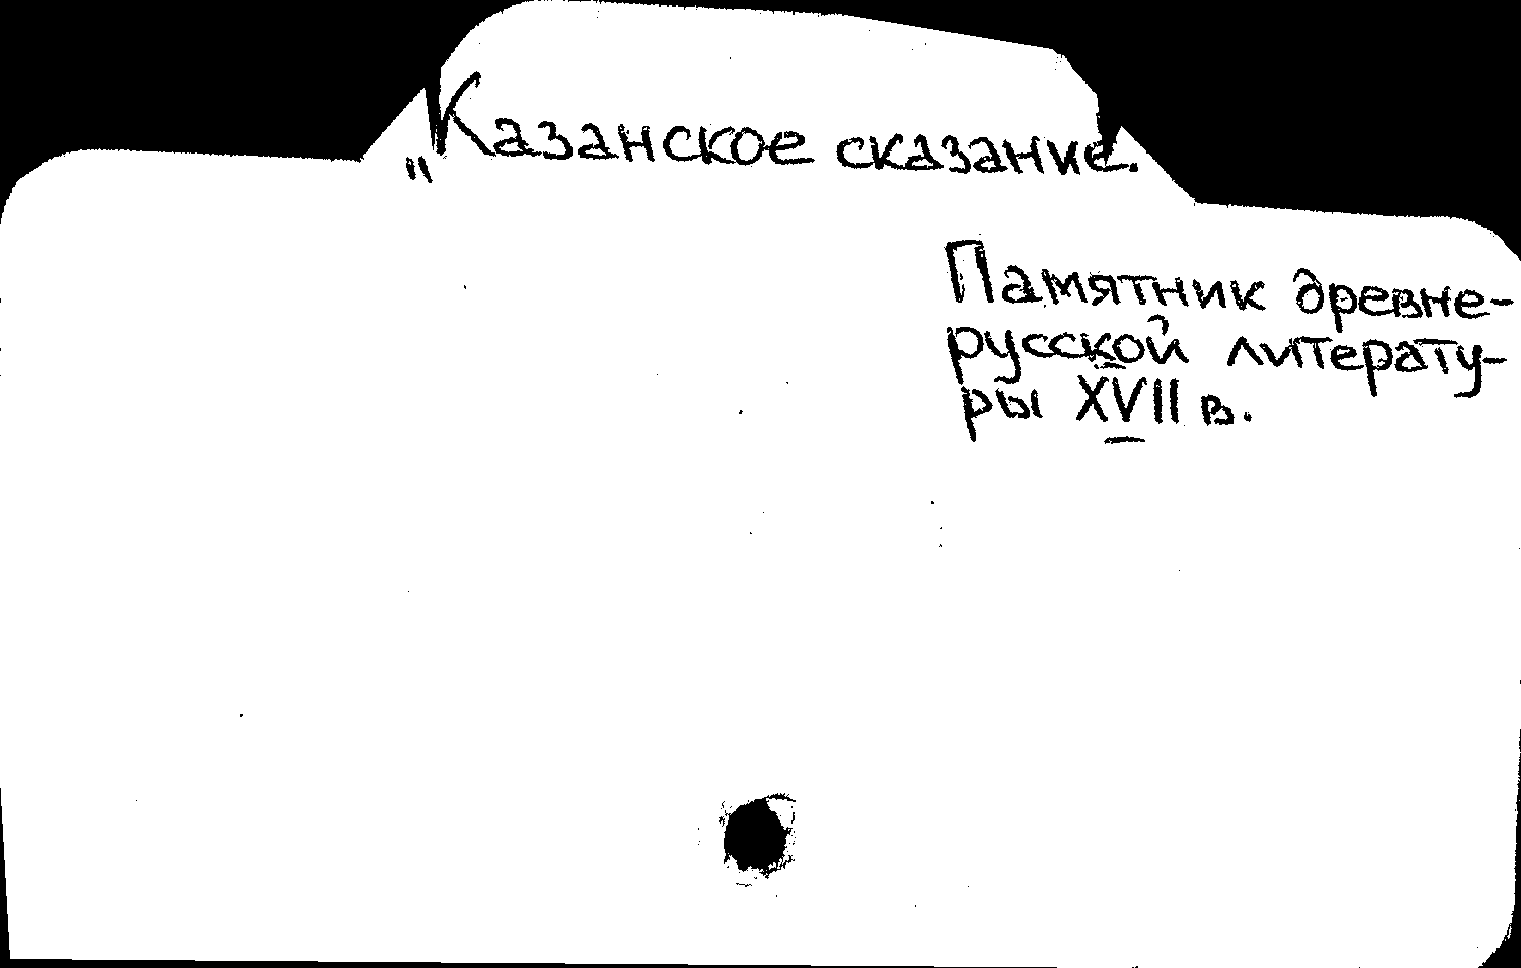 „Казанское сказание.
Памятник древне-
русской литерату-
ры XVII в.